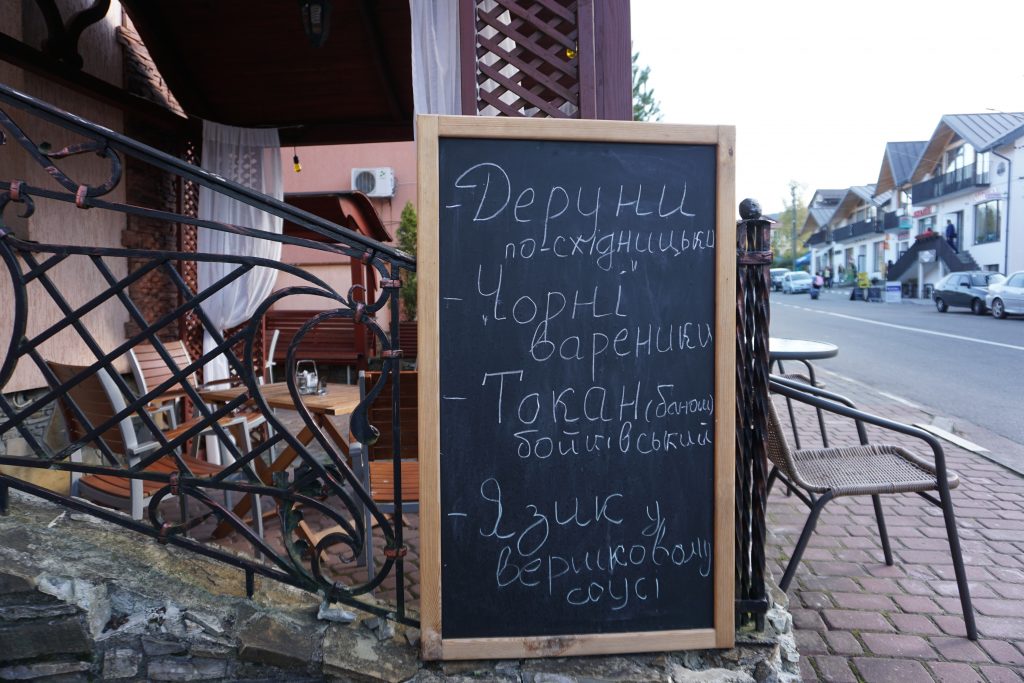 - Деруни
по-східницьки
- "Чорні"
вареники
- Токан (банош)
бойківський
- Язик у
вершковому
соусі